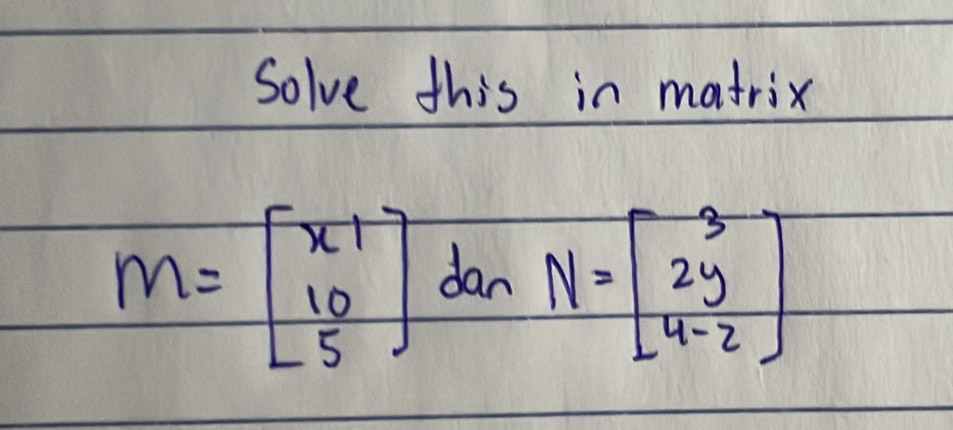 Solve this in matrix
M = [x 1
10
5] dan N = [3
2y
4-2]